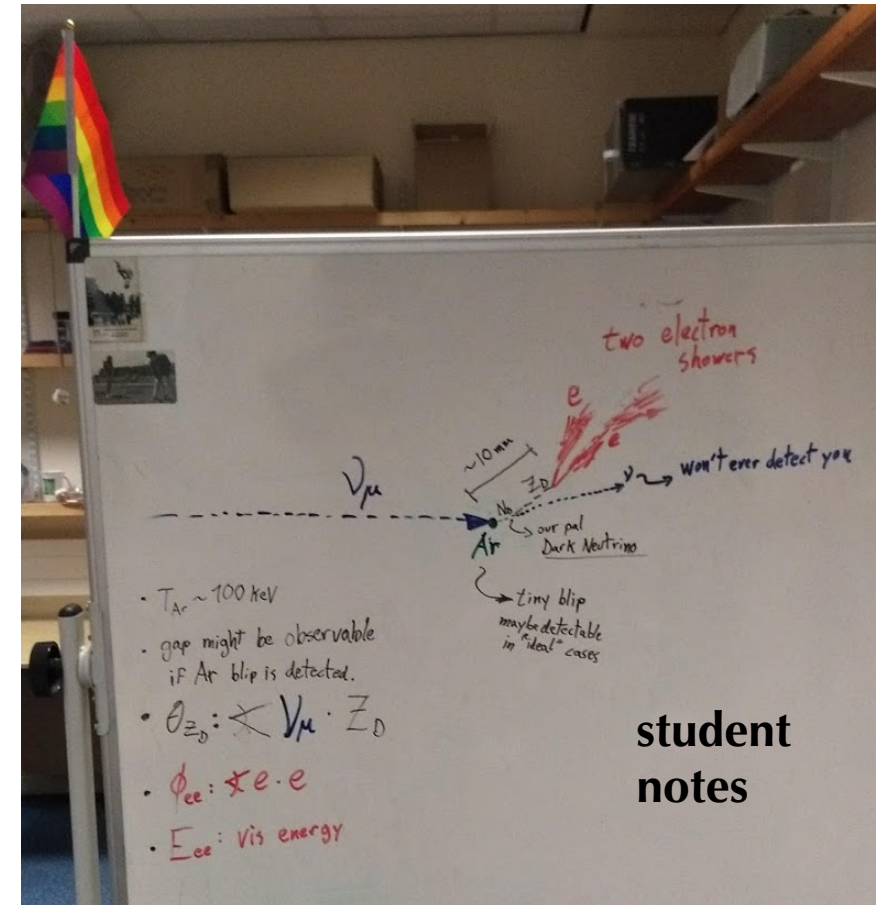 two electron
showers
e
e
~10mm
ν
won't ever detect you
Z_D
N_D
ν_μ
our pal
Dark Neutrino
Ar
tiny blip
maybe detectable
in "ideal" cases
• T_Ar ~ 100 keV
• gap might be observable
if Ar blip is detected.
• θ_{Z_D}: ∢ ν_μ · Z_D
• ϕ_ee: ∢ e · e
• E_ee: vis energy
student
notes